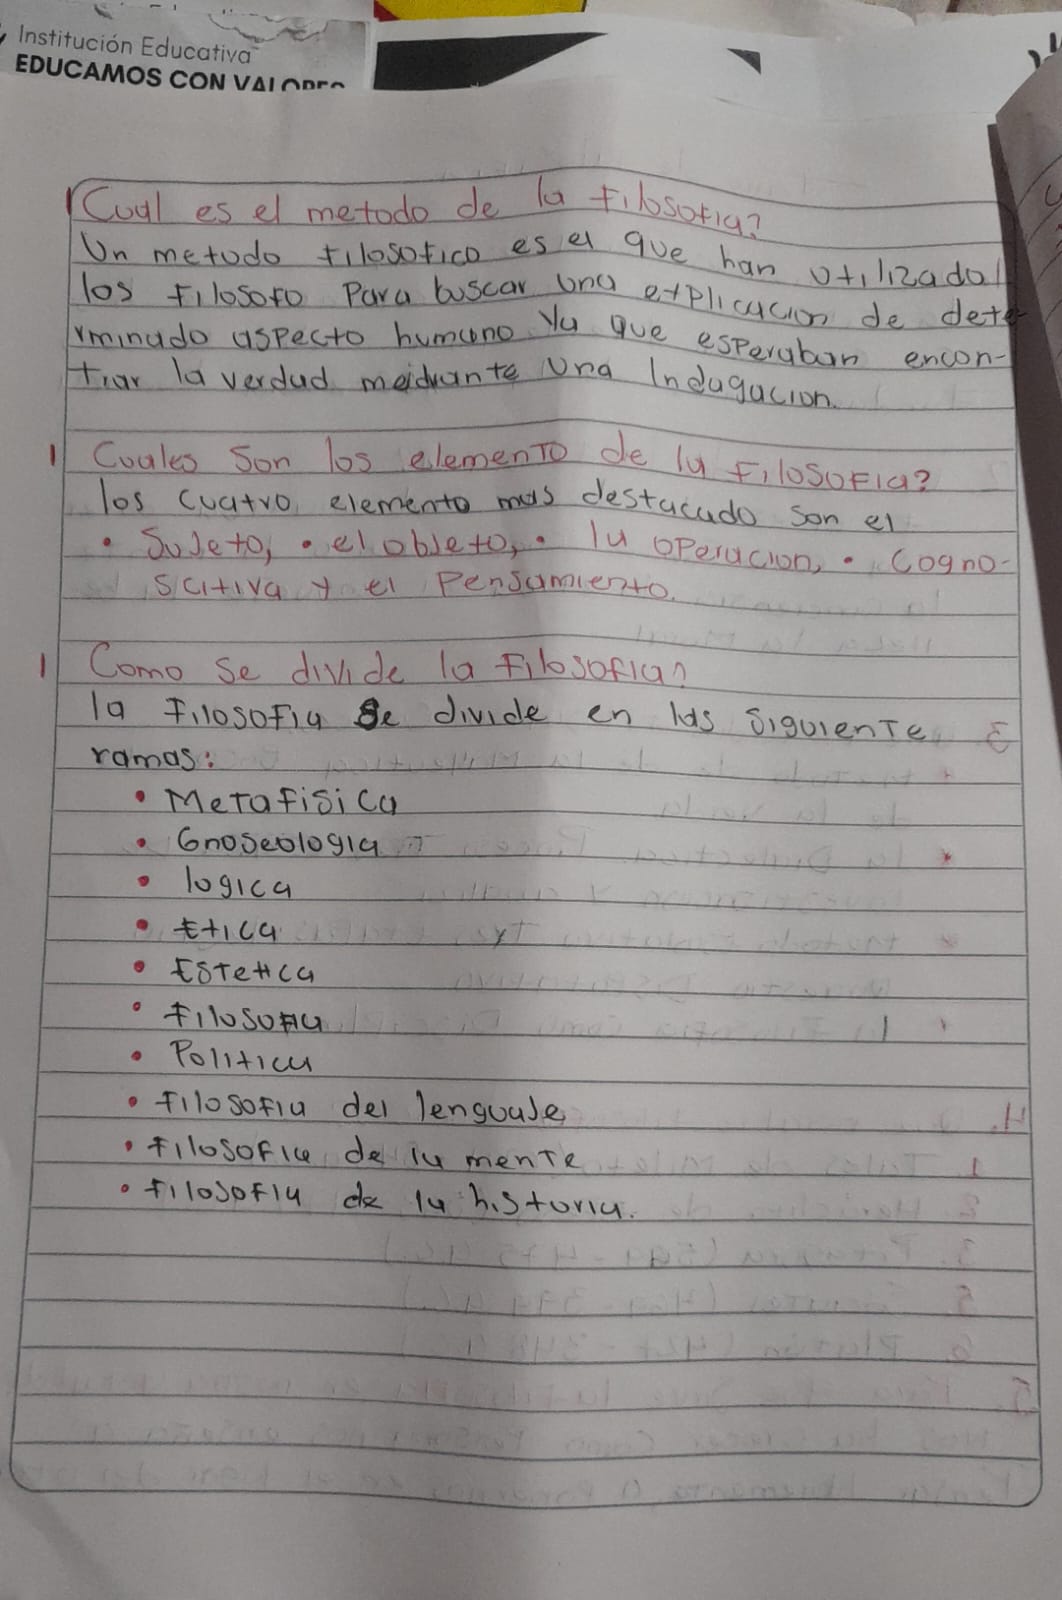 Institución Educativa
EDUCAMOS CON VALORES
Cual es el metodo de la Filosofia?
Un metodo filosofico es el que han utilizado
los filosofo Para buscar una explicacion de dete
rminado aspecto humano Ya que esperaban encon-
trar la verdad meidiante una Indagacion.
1 Cuales Son los elemento de la Filosofia?
los cuatro elemento mas destacado son el
• Sujeto, • el objeto, • la operacion, • Cogno-
scitiva y el Pensamiento.
1 Como Se divide la Filosofia?
la Filosofia Se divide en las Siguiente
ramas:
• Metafisica
• Gnoseologia
• logica
• Etica
• Estetica
• filosofia
• Politica
• filosofia del lenguaje
• filosofia de la mente
• filosofia de la historia.